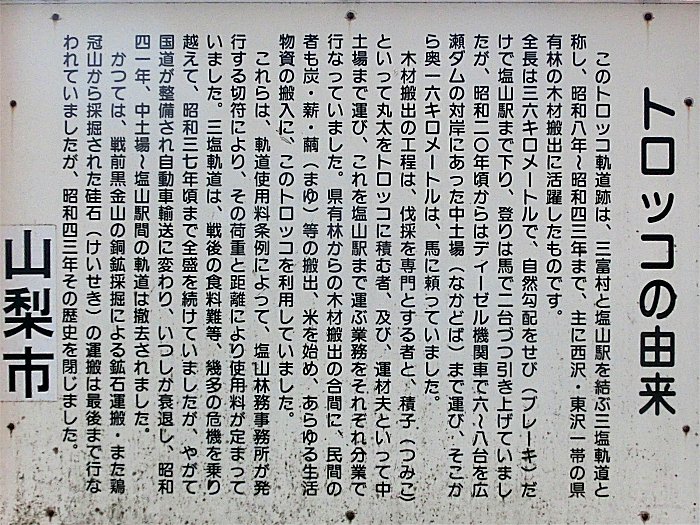 トロッコの由来
このトロッコ軌道跡は、三富村と塩山駅を結ぶ三塩軌道と
称し、昭和八年～昭和四三年まで、主に西沢・東沢一帯の県
有林の木材搬出に活躍したものです。
全長は三六キロメートルで、自然勾配をせび（ブレーキ）だ
けで塩山駅まで下り、登りは馬で二台づつ引き上げていまし
たが、昭和二〇年頃からはディーゼル機関車で六～八台を広
瀬ダムの対岸にあった中土場（なかどば）まで運び、そこか
ら奥一六キロメートルは、馬に頼っていました。
木材搬出の工程は、伐採を専門とする者と、積子（つみこ）
といって丸太をトロッコに積む者、及び、運材夫といって中
土場まで運び、これを塩山駅まで運ぶ業務をそれぞれ分業で
行なっていました。県有林からの木材搬出の合間に、民間の
者も炭・薪・繭（まゆ）等の搬出、米を始め、あらゆる生活
物資の搬入に、このトロッコを利用していました。
これらは、軌道使用料条例によって、塩山林務事務所が発
行する切符により、その荷重と距離により使用料が定まって
いました。三塩軌道は、戦後の食料難等、幾多の危機を乗り
越えて、昭和三七年頃まで全盛を続けていましたが、やがて
国道が整備され自動車輸送に変わり、いつしか衰退し、昭和
四一年、中土場～塩山駅間の軌道は撤去されました。
かつては、戦前黒金山の銅鉱採掘による鉱石運搬・また鶏
冠山から採掘された硅石（けいせき）の運搬は最後まで行な
われていましたが、昭和四三年その歴史を閉じました。
山梨市